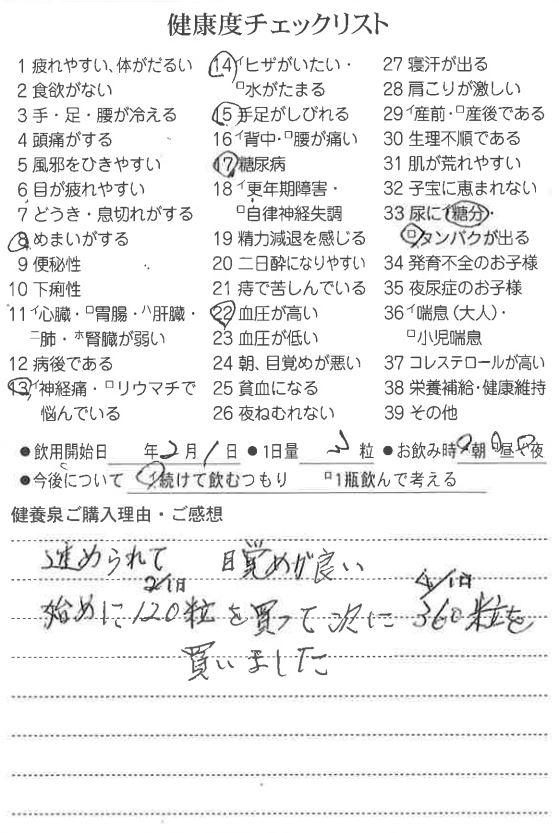 健康度チェックリスト
1 疲れやすい、体がだるい
2 食欲がない
3 手・足・腰が冷える
4 頭痛がする
5 風邪をひきやすい
6 目が疲れやすい
7 どうき・息切れがする
8 めまいがする
9 便秘性
10 下痢性
11 イ心臓・ロ胃腸・ハ肝臓・
ニ肺・ホ腎臓が弱い
12 病後である
13 イ神経痛・ロリウマチで
悩んでいる
14 イヒザがいたい・
ロ水がたまる
15 手足がしびれる
16 イ背中・ロ腰が痛い
17 糖尿病
18 イ更年期障害・
ロ自律神経失調
19 精力減退を感じる
20 二日酔になりやすい
21 痔で苦しんでいる
22 血圧が高い
23 血圧が低い
24 朝、目覚めが悪い
25 貧血になる
26 夜ねむれない
27 寝汗が出る
28 肩こりが激しい
29 イ産前・ロ産後である
30 生理不順である
31 肌が荒れやすい
32 子宝に恵まれない
33 尿にイ糖分・
ロタンパクが出る
34 発育不全のお子様
35 夜尿症のお子様
36 イ喘息(大人)・
ロ小児喘息
37 コレステロールが高い
38 栄養補給・健康維持
39 その他
●飲用開始日 年2月1日 ●1日量 粒 ●お飲み時 朝 昼 夜
●今後について イ続けて飲むつもり ロ1瓶飲んで考える
健養泉ご購入理由・ご感想
進められて 目覚めが良い
2/1日 4/1日
始めに120粒を買って次に360粒を
買いました